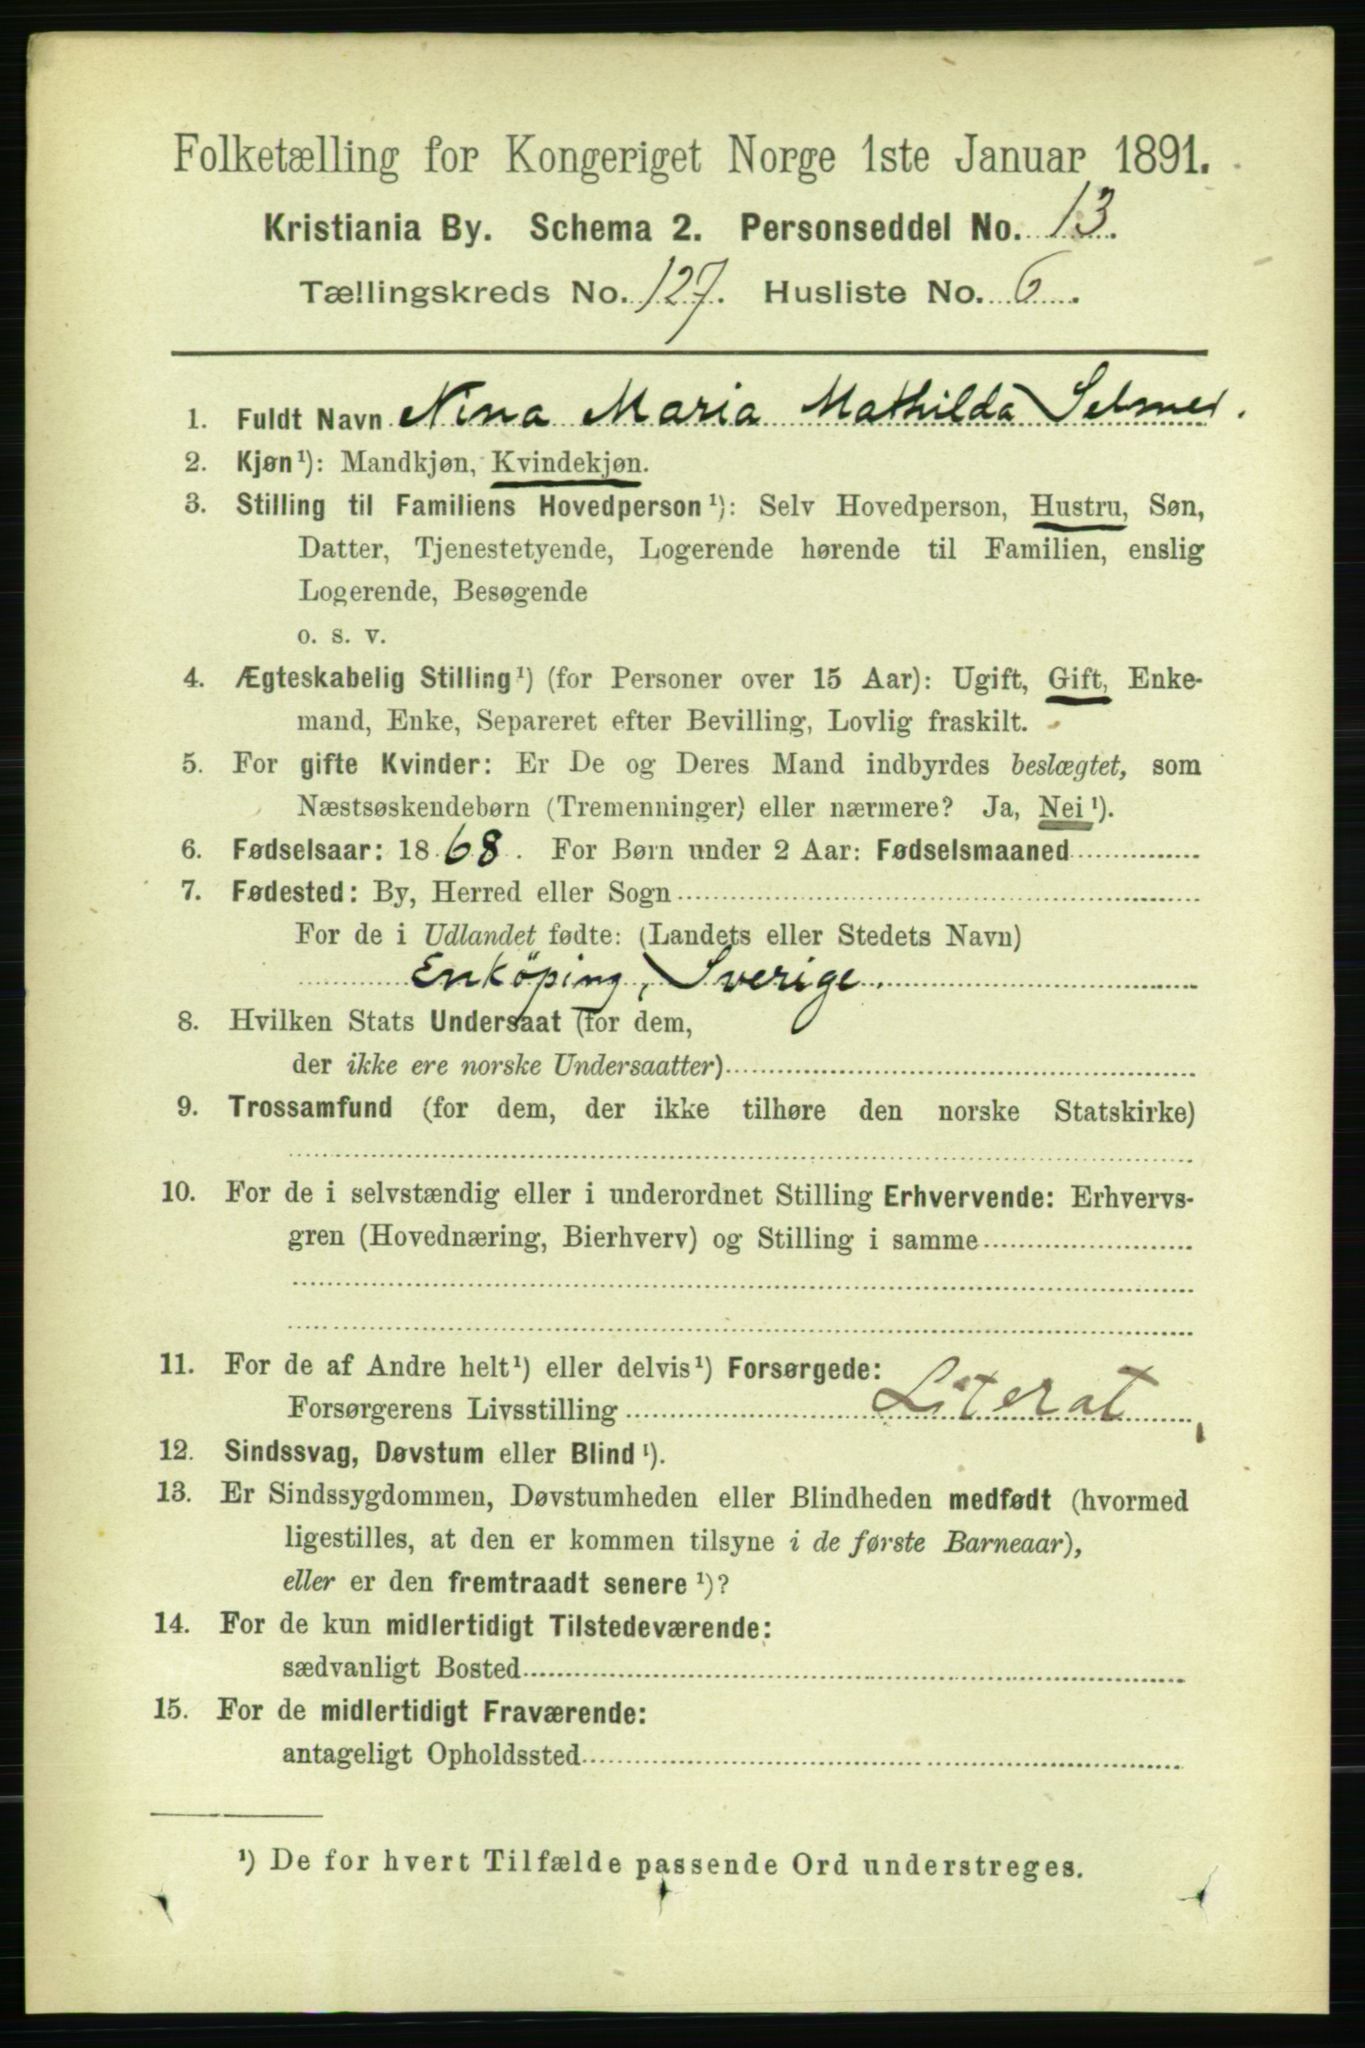 Folketælling for Kongeriget Norge 1ste Januar 1891.
Kristiania By. Schema 2. Personseddel No. 13.
Tællingskreds No. 127. Husliste No. 6.
1. Fuldt Navn Nina Maria Mathilda Selmer.
2. Kjøn¹): Mandkjøn, Kvindekjøn.
3. Stilling til Familiens Hovedperson¹): Selv Hovedperson, Hustru, Søn,
Datter, Tjenestetyende, Logerende hørende til Familien, enslig
Logerende, Besøgende
o. s. v.
4. Ægteskabelig Stilling¹) (for Personer over 15 Aar): Ugift, Gift, Enke-
mand, Enke, Separeret efter Bevilling, Lovlig fraskilt.
5. For gifte Kvinder: Er De og Deres Mand indbyrdes beslægtet, som
Næstsøskendebørn (Tremenninger) eller nærmere? Ja, Nei¹).
6. Fødselsaar: 1868. For Børn under 2 Aar: Fødselsmaaned
7. Fødested: By, Herred eller Sogn
For de i Udlandet fødte: (Landets eller Stedets Navn)
Enköping, Sverige.
8. Hvilken Stats Undersaat (for dem,
der ikke ere norske Undersaatter)
9. Trossamfund (for dem, der ikke tilhøre den norske Statskirke)
10. For de i selvstændig eller i underordnet Stilling Erhvervende: Erhvervs-
gren (Hovednæring, Bierhverv) og Stilling i samme
11. For de af Andre helt¹) eller delvis¹) Forsørgede:
Forsørgerens Livsstilling Literat
12. Sindssvag, Døvstum eller Blind¹).
13. Er Sindssygdommen, Døvstumheden eller Blindheden medfødt (hvormed
ligestilles, at den er kommen tilsyne i de første Barneaar),
eller er den fremtraadt senere¹)?
14. For de kun midlertidigt Tilstedeværende:
sædvanligt Bosted
15. For de midlertidigt Fraværende:
antageligt Opholdssted
¹) De for hvert Tilfælde passende Ord understreges.